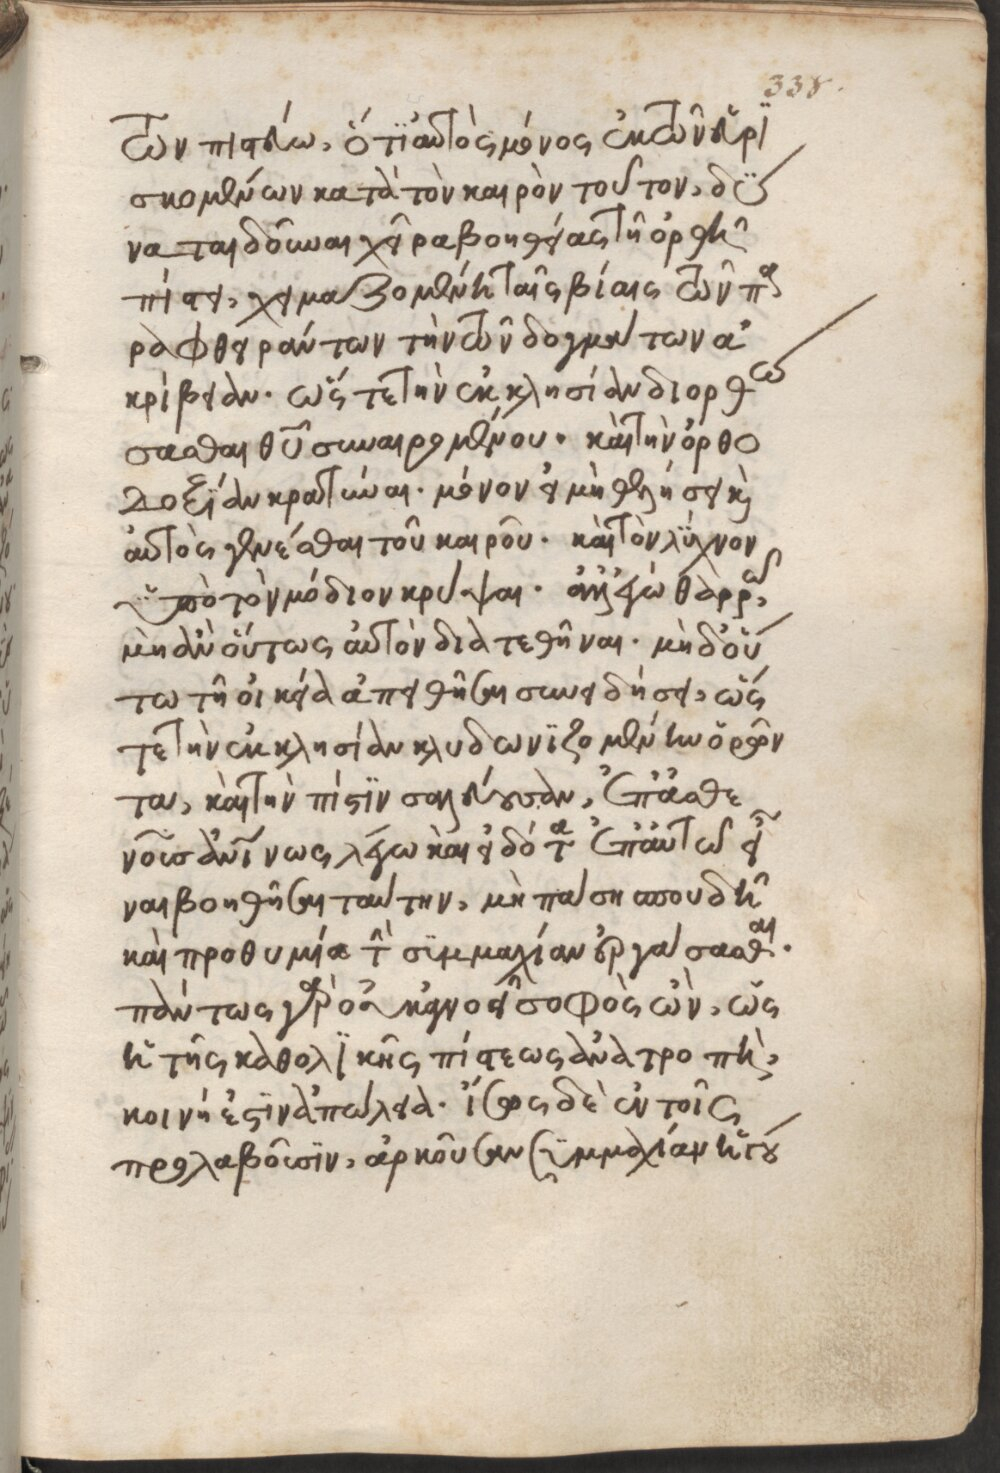 338.
τῶν πιστεύω, ὅτι αὐτὸς μόνος ἐκ τῶν εὑρι
σκομένων κατὰ τὸν καιρὸν τοῦτον, δύ
ναται δοῦναι χεῖρα βοηθείας τῇ ὀρθῇ
πίστει, χειμαζομένῃ ταῖς βίαις τῶν πα
ραφθειράντων τὴν τῶν δογμάτων ἀ
κρίβειαν. ὥστε τὴν ἐκκλησίαν διορθώ
σασθαι θεοῦ συναιρομένου. καὶ τὴν ὀρθο
δοξίαν κρατῦναι. μόνον εἰ μὴ θελήσει καὶ
αὐτὸς γενέσθαι τοῦ καιροῦ. καὶ τὸν λύχνον
ὑπὸ τὸν μόδιον κρύψαι. ἀλλ' ἐγὼ θαρρῶ,
μὴ ἂν οὕτως αὐτὸν διατεθῆναι. μὴδ' οὕ
τω τῇ οἰκείᾳ ἀπειθῆσαι συνειδήσει, ὥς
τε τὴν ἐκκλησίαν κλυδωνιζομένην ὁρῶν
τα, καὶ τὴν πίστιν σαλεύουσαν, ἐπ' ἀσθε
νοῦσαν τινως λέγω καὶ εἰδότα ἐπ' αὐτῷ εἶ
ναι βοηθῆσαι ταύτην, μὴ πάσῃ σπουδῇ
καὶ προθυμίᾳ τὴν συμμαχίαν ἐργάσασθαι.
πάντως γὰρ οὐκ ἀγνοεῖ σοφὸς ὢν, ὡς
ἡ τῆς καθολικῆς πίστεως ἀνατροπὴ,
κοινή ἐστιν ἀπώλεια. ἴσως δὲ ἐν τοῖς
προλαβοῦσιν, ἀρκοῦσαν συμμαχίαν ἡγού